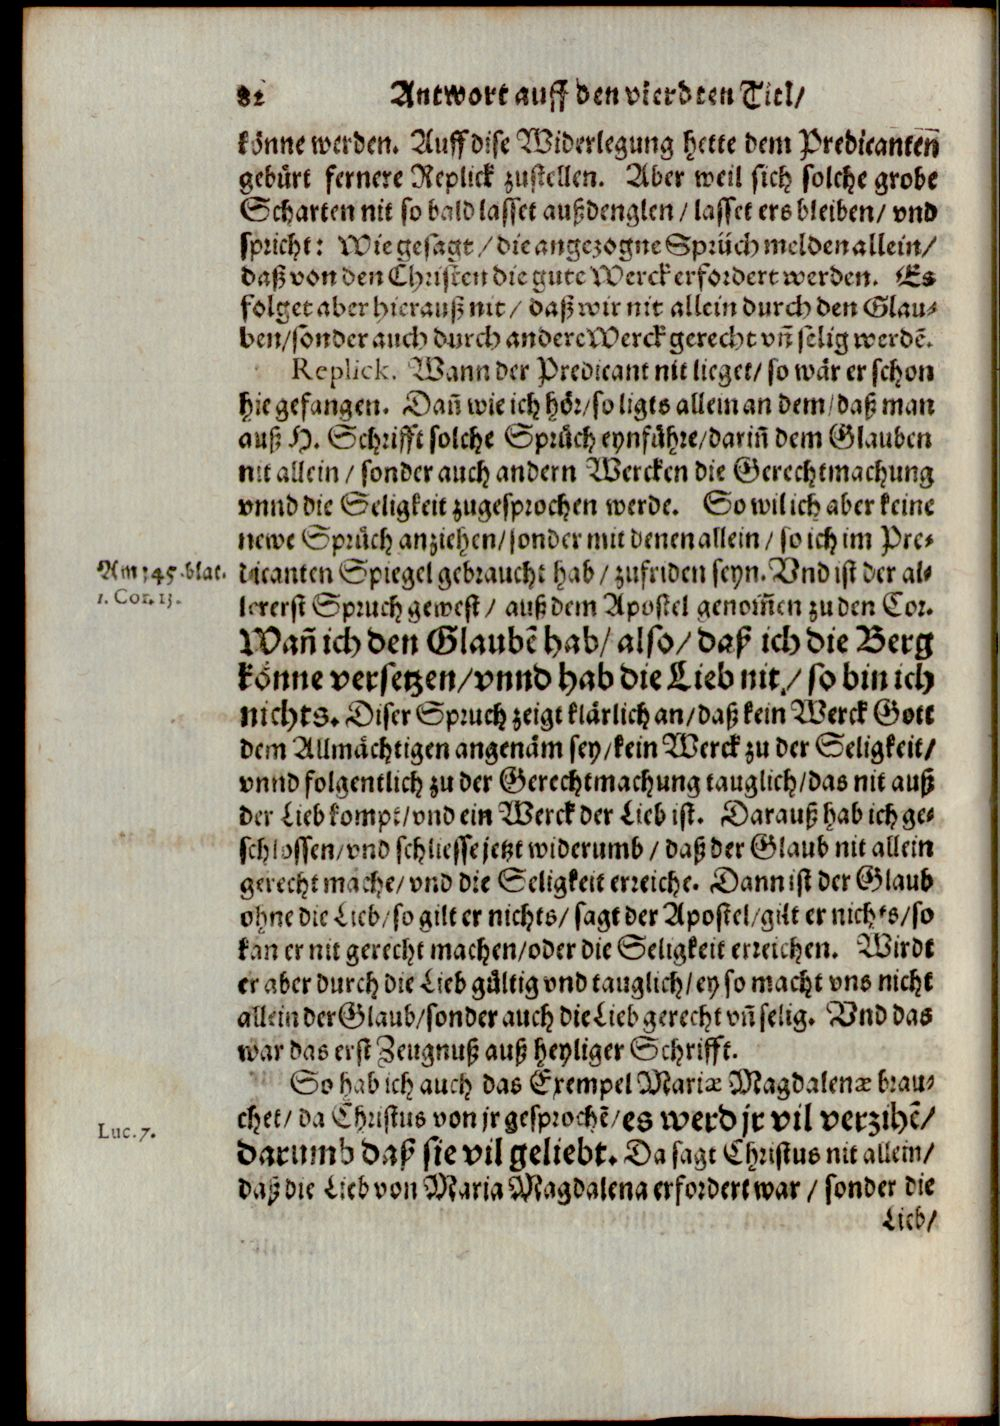 82 Antwort auff den vierdten Titl/
könne werden. Auff dise Widerlegung hette dem Predicanten̄
gebürt fernere Replick zustellen. Aber weil sich solche grobe
Scharten nit so bald lasset außdenglen / lasset ers bleiben/ vnd
spricht: Wie gesagt / die angezogne Sprüch melden allein/
daß von den Christen die gute Werck erfordert werden. Es
folget aber hierauß nit / daß wir nit allein durch den Glau⸗
ben/sonder auch durch andere Werck gerecht vn̄ selig werdē.
Replick. Wann der Predicant nit lieget/ so wär er schon
hie gefangen. Dan̄ wie ich hör/so ligts allein an dem/daß man
auß H. Schrifft solche Sprüch eynführe/darin̄ dem Glauben
nit allein / sonder auch andern Wercken die Gerechtmachung
vnnd die Seligkeit zugesprochen werde. So wil ich aber keine
newe Sprüch anziehen/sonder mit denen allein / so ich im Pre⸗
Am 145. blat. dicanten Spiegel gebraucht hab / zufriden seyn. Vnd ist der al⸗
1. Cor. 13. lererst Spruch gewest / auß dem Apostel genom̄en zu den Cor.
Wan̄ ich den Glaubē hab/ also/ daß ich die Berg
könne versetzen/vnnd hab die Lieb nit/ so bin ich
nichts. Diser Spruch zeigt klärlich an/daß kein Werck Gott
dem Allmächtigen angenäm sey/kein Werck zu der Seligkeit/
vnnd folgentlich zu der Gerechtmachung tauglich/das nit auß
der Lieb kompt/vnd ein Werck der Lieb ist. Darauß hab ich ge⸗
schlossen/vnd schliesse jetzt widerumb / daß der Glaub nit allein
gerecht mache/ vnd die Seligkeit erreiche. Dann ist der Glaub
ohne die Lieb/so gilt er nichts/ sagt der Apostel/gilt er nichts/so
kan er nit gerecht machen/oder die Seligkeit erreichen. Wirdt
er aber durch die Lieb gültig vnd tauglich/ ey so macht vns nicht
allein der Glaub/sonder auch die Lieb gerecht vn̄ selig. Vnd das
war das erst Zeugnuß auß heyliger Schrifft.
So hab ich auch das Exempel Mariæ Magdalenæ brau⸗
chet/ da Christus von jr gesprochē/es werd jr vil verzihē/
Luc. 7. darumb daß sie vil geliebt. Da sagt Christus nit allein/
daß die Lieb von Maria Magdalena erfordert war / sonder die
Lieb/